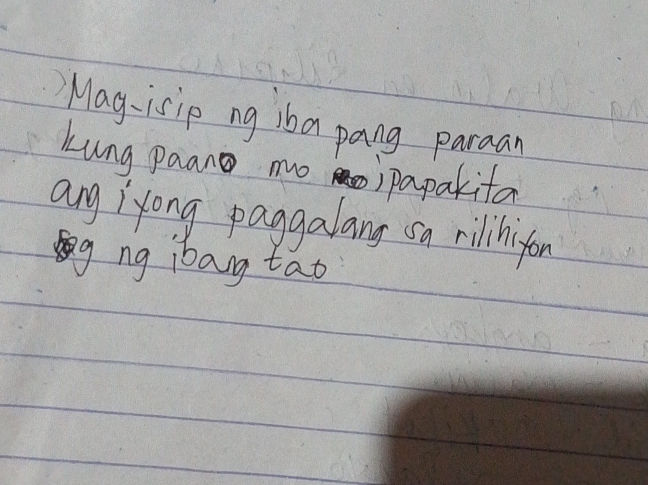 Mag-isip ng iba pang paraan
kung paano mo ipapakita
ang iyong paggalang sa rilihiyon
ng ibang tao